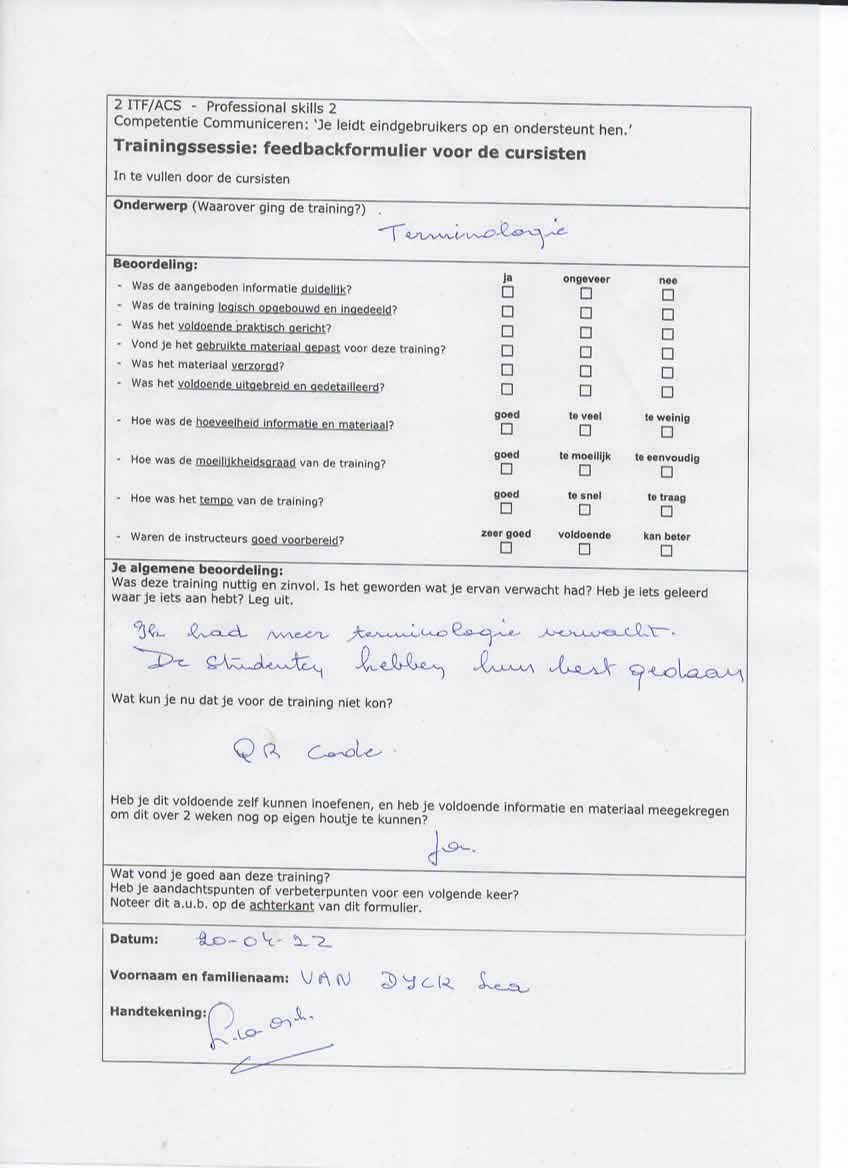 2 ITF/ACS - Professional skills 2
Competentie Communiceren: 'Je leidt eindgebruikers op en ondersteunt hen.'
Trainingssessie: feedbackformulier voor de cursisten
In te vullen door de cursisten
Onderwerp (Waarover ging de training?)
Terminologie
Beoordeling:
ja ongeveer nee
- Was de aangeboden informatie duidelijk?
- Was de training logisch opgebouwd en ingedeeld?
- Was het voldoende praktisch gericht?
- Vond je het gebruikte materiaal gepast voor deze training?
- Was het materiaal verzorgd?
- Was het voldoende uitgebreid en gedetailleerd?
goed te veel te weinig
- Hoe was de hoeveelheid informatie en materiaal?
goed te moeilijk te eenvoudig
- Hoe was de moeilijkheidsgraad van de training?
goed te snel te traag
- Hoe was het tempo van de training?
zeer goed voldoende kan beter
- Waren de instructeurs goed voorbereid?
Je algemene beoordeling:
Was deze training nuttig en zinvol. Is het geworden wat je ervan verwacht had? Heb je iets geleerd
waar je iets aan hebt? Leg uit.
Ik had meer terminologie verwacht.
De studenten hebben hun best gedaan
Wat kun je nu dat je voor de training niet kon?
QR Code.
Heb je dit voldoende zelf kunnen inoefenen, en heb je voldoende informatie en materiaal meegekregen
om dit over 2 weken nog op eigen houtje te kunnen?
Ja.
Wat vond je goed aan deze training?
Heb je aandachtspunten of verbeterpunten voor een volgende keer?
Noteer dit a.u.b. op de achterkant van dit formulier.
Datum: 20-04-22
Voornaam en familienaam: VAN DYCK Lea
Handtekening: